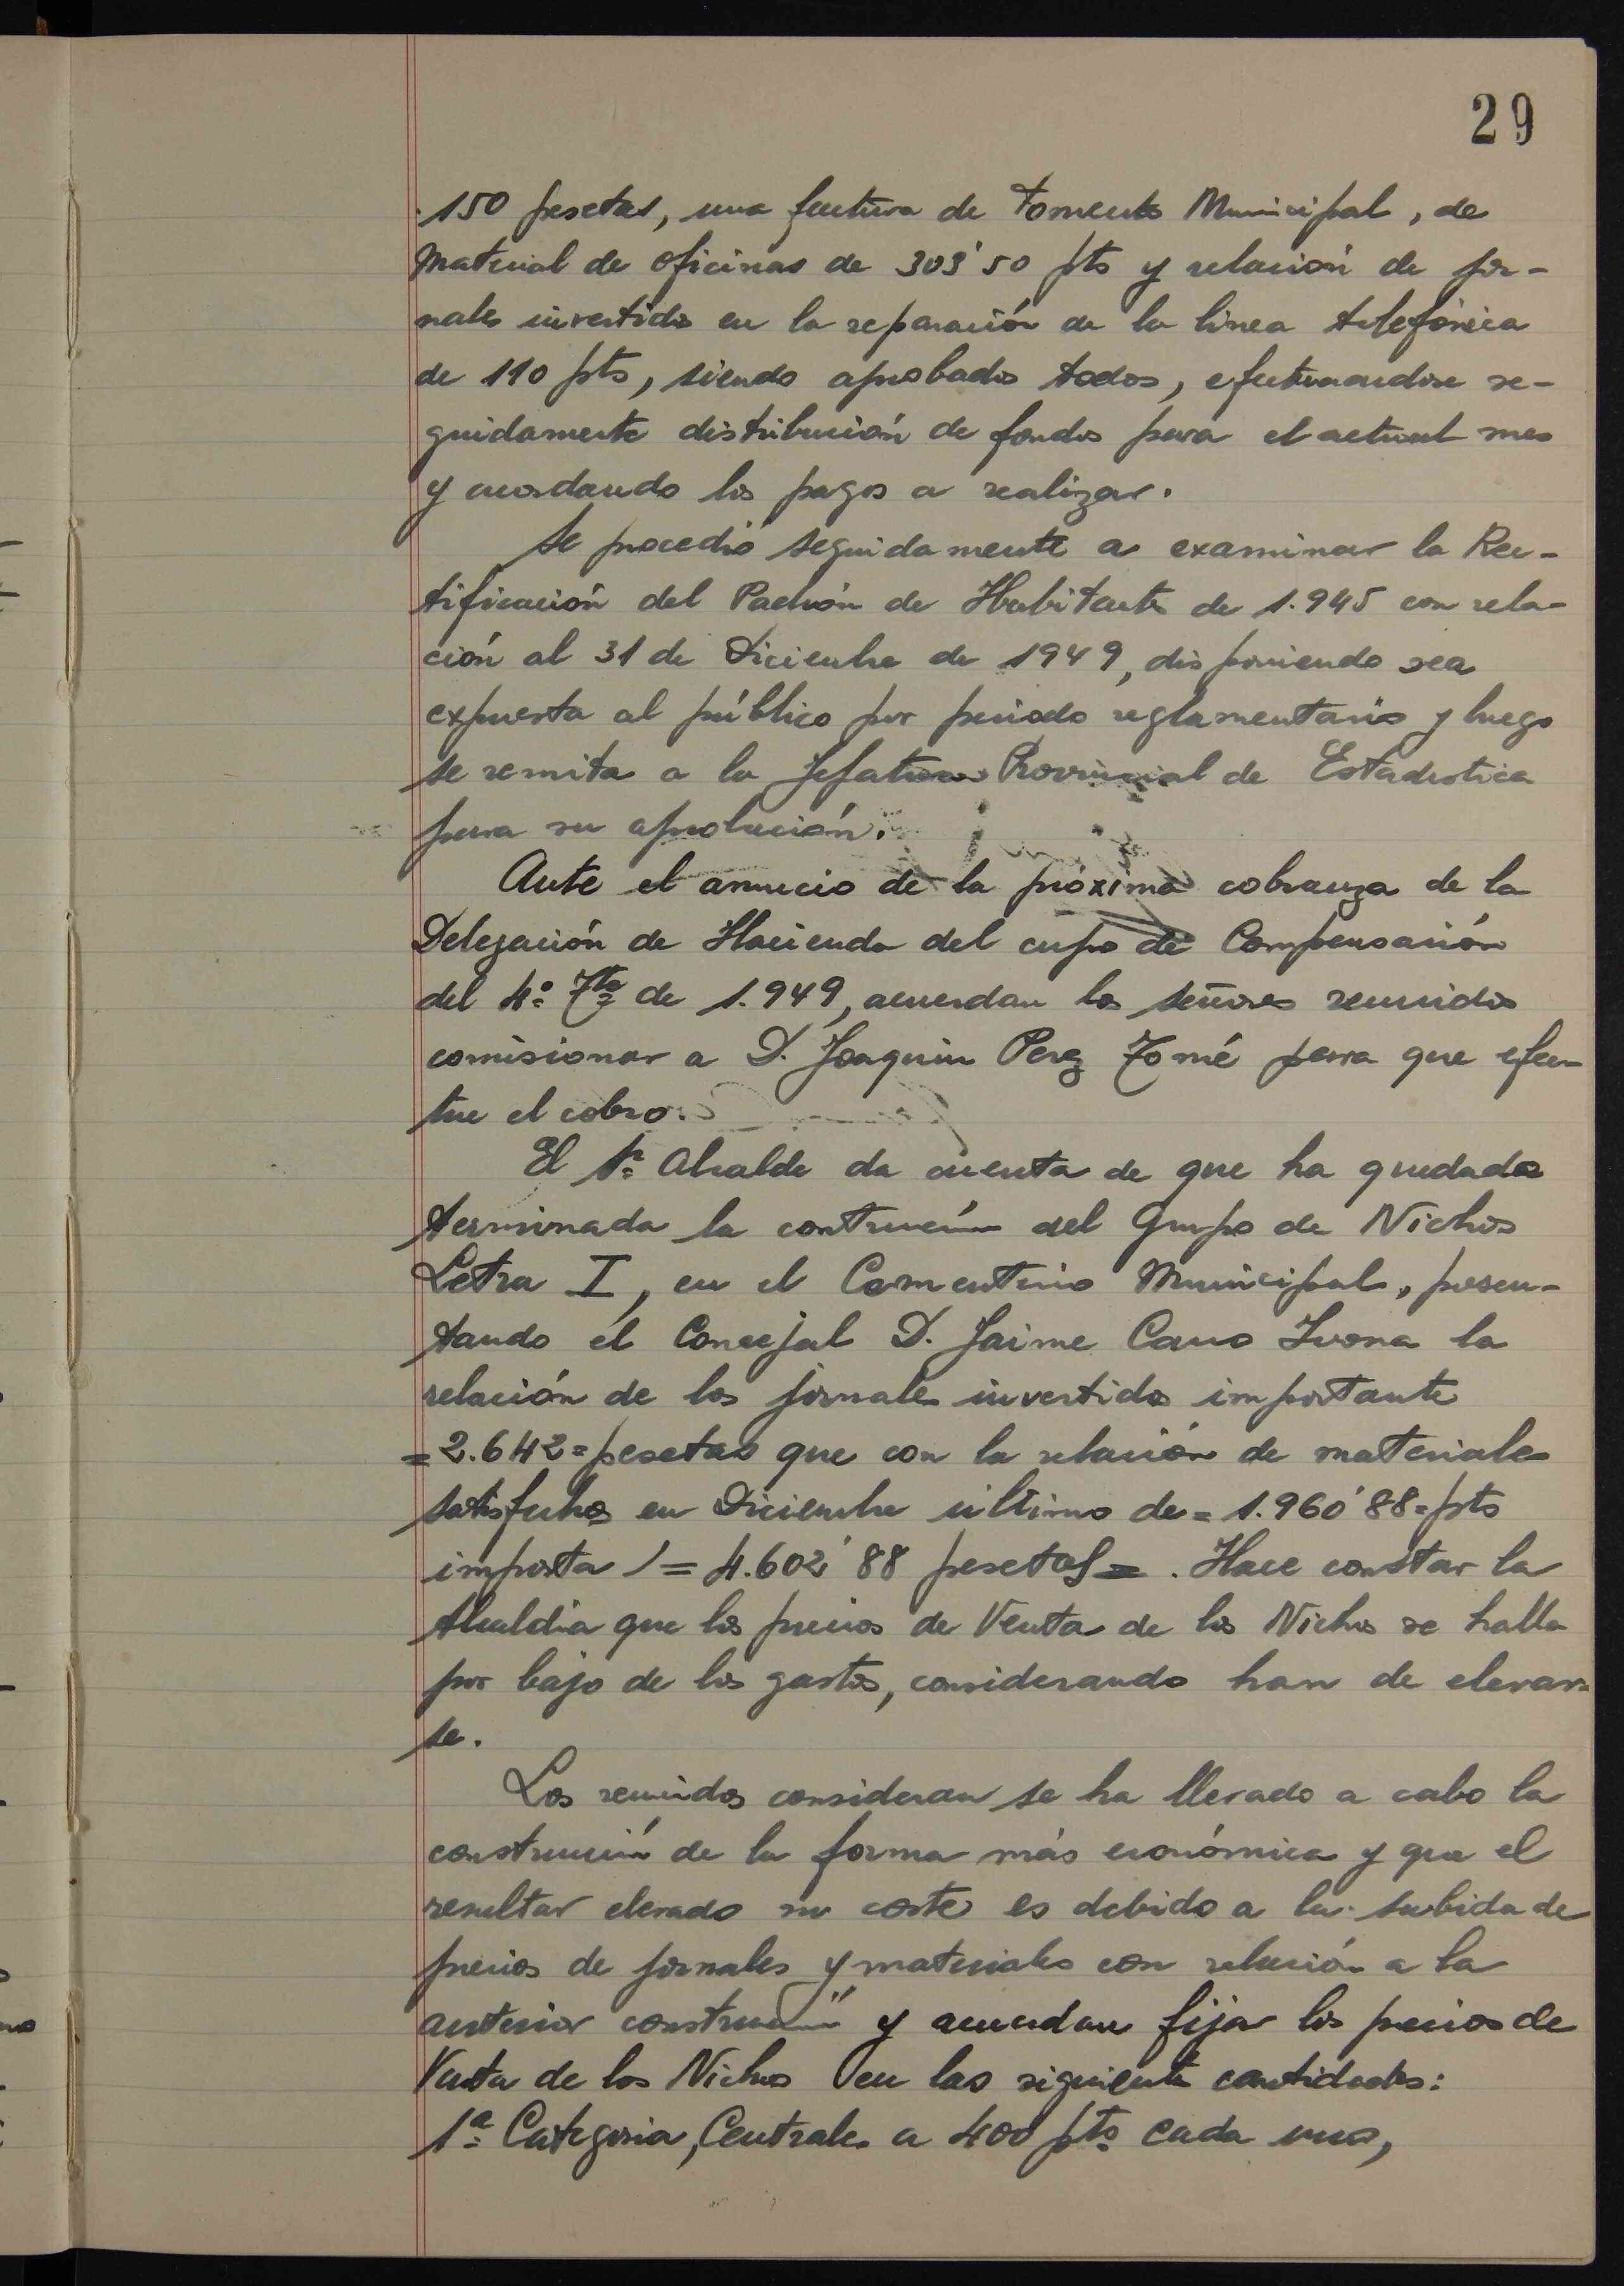 29
150 pesetas, una factura de Fomento Municipal, de
Material de oficinas de 303'50 pts y relación de jor-
nales invertidos en la reparación de la linea telefónica
de 110 pts, siendo aprobados todos, efectuandose se-
guidamente distribución de fondos para el actual mes
y acordando los pagos a realizar.
Se procedió seguidamente a examinar la Rec-
tificación del Padrón de Habitantes de 1.945 con rela-
ción al 31 de Diciembre de 1949, disponiendo sea
expuesta al público por periodo reglamentario y luego
se remita a la Jefatura Provincial de Estadistica
para su aprobación.
Ante el anuncio de la próxima cobranza de la
Delegación de Hacienda del cupo de Compensación
del 4º Tte de 1.949, acuerdan los señores reunidos
comisionar a D. Joaquin Perez Tomé para que efec-
tue el cobro.
El Sr. Alcalde da cuenta de que ha quedado
terminada la contrucción del Grupo de Nichos
Letra I, en el Cementerio Municipal, presen-
tando el Concejal D. Jaime Cano la
relación de los jornales invertidos importante
=2.642= pesetas que con la relación de materiales
satisfechos en Diciembre último de =1.960'88= pts
importa =4.602'88 pesetas=. Hace constar la
Alcaldia que los precios de Venta de los Nichos se halla
por bajo de los gastos, considerando han de elevar-
se.
Los reunidos consideran se ha llevado a cabo la
construcción de la forma más económica y que el
resultar elevado su coste es debido a la subida de
precios de jornales y materiales con relación a la
anterior construcción y acuerdan fijar los precios de
Venta de los Nichos en las siguientes cantidades:
1ª Categoria, Centrales a 400 pts cada uno,